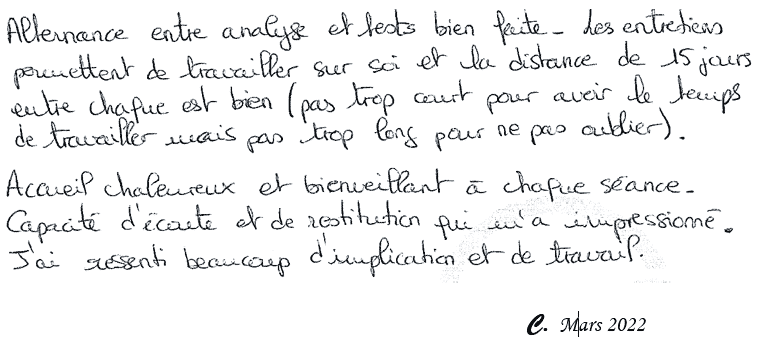 Alternance entre analyse et tests bien faite - Les entretiens
permettent de travailler sur soi et la distance de 15 jours
entre chaque est bien (pas trop court pour avoir le temps
de travailler mais pas trop long pour ne pas oublier).
Accueil chaleureux et bienveillant à chaque séance -
Capacité d'écoute et de restitution qui m'a impressionné.
J'ai ressenti beaucoup d'implication et de travail.
C. Mars 2022